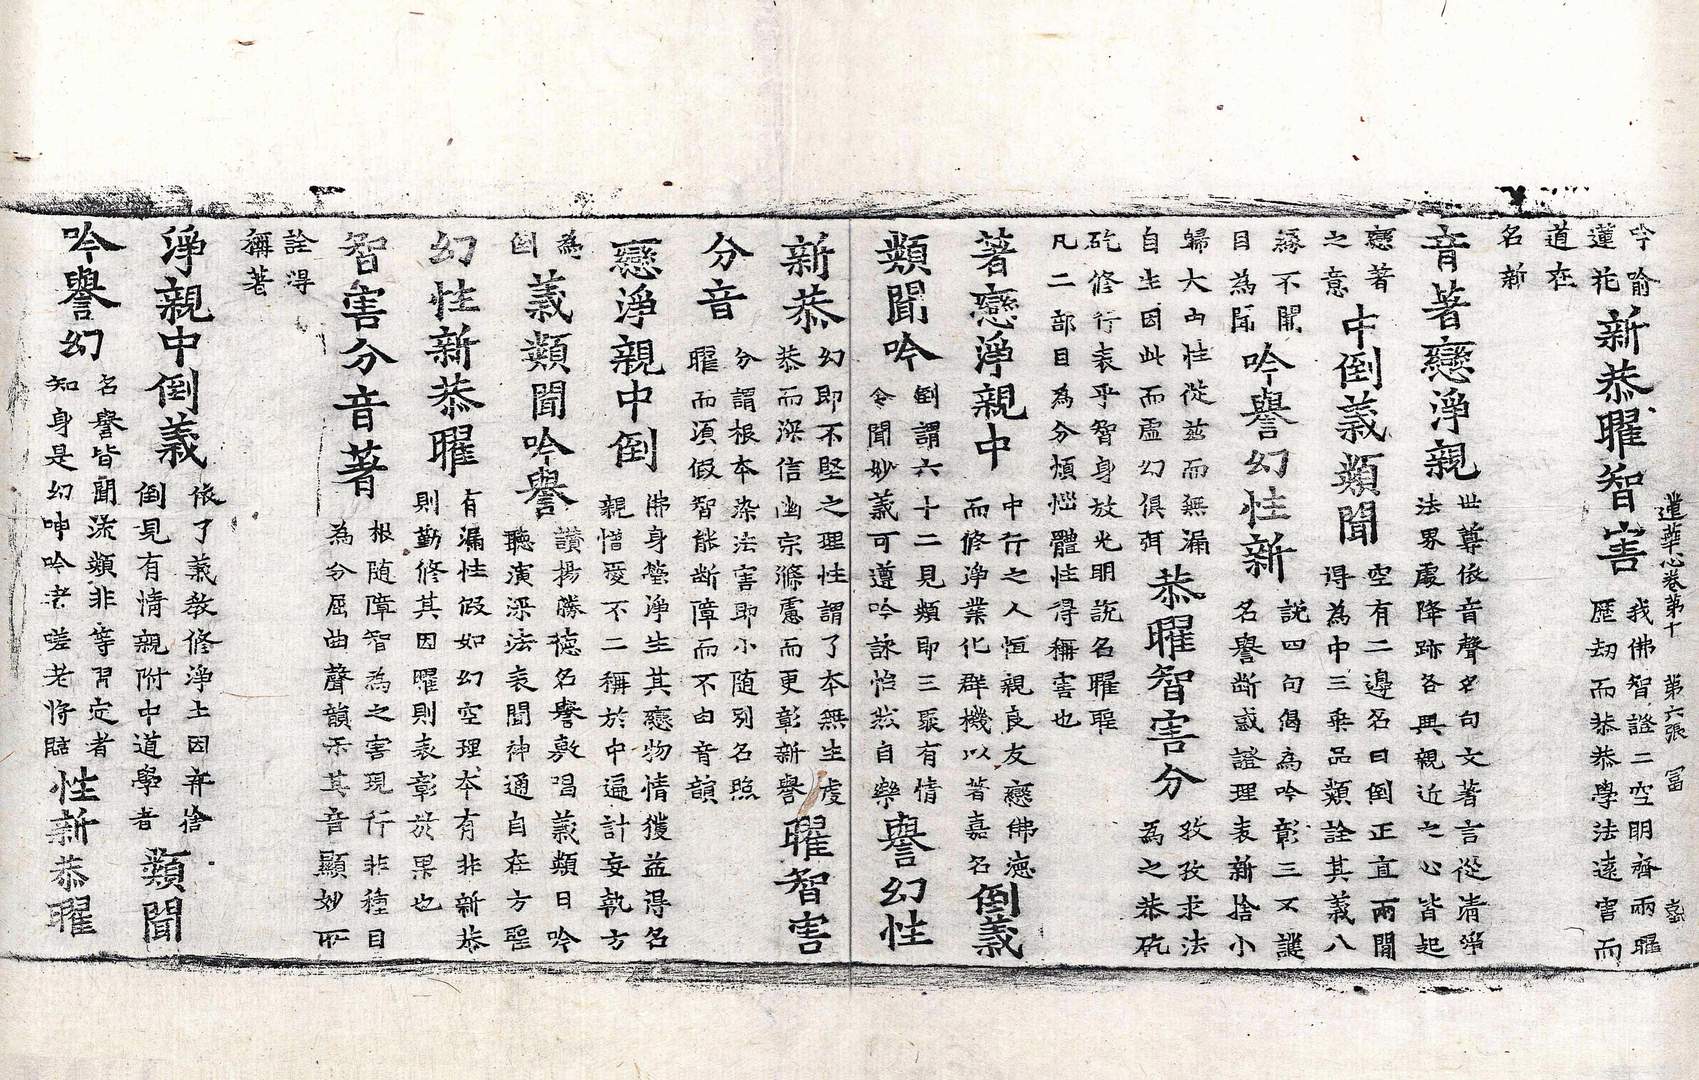 蓮華心卷第十 第六張 冨
吟喻
蓮花
新恭曜智害
我佛智證二空明齊兩曜
歷劫而恭恭學法遠害而
道在
名新
音著戀淨親
世尊依音聲名句文著言從清淨
法界處降跡各興親近之心皆起
戀著
之意
中倒義類聞
空有二邊名曰倒正直兩間
得為中三乘品類詮其義八
緣不聞
目為聞
吟譽幻性新
說四句偈為吟彰三不護
名譽斷惑證理表新捨小
歸大由性從茲而無漏
自生因此而虛幻俱弭
恭曜智害分
孜孜求法
為之恭矻
矻修行表乎智身放光明說名曜曜
凡二部目為分煩惱體性得稱害也
著戀淨親中
中行之人恒親良友戀佛德
而修淨業化群機以著嘉名
倒義
類聞吟
倒謂六十二見類即三聚有情
令聞妙義可遵吟詠怡然自樂
譽幻性
新恭
幻即不堅之理性謂了本無生虔
恭而深信幽宗滌慮而更彰新譽
曜智害
分音
分謂根本染法害即小隨別名照
曜而須假智能斷障而不由音韻
戀淨親中倒
佛身瑩淨生其戀物情獲益得名
親憎愛不二稱於中遍計妄執方
為
倒
義類聞吟譽
讚揚勝德名譽敷唱義類曰吟
聽演深法表聞神通自在方聖
幻性新恭曜
有漏性假如幻空理本有非新恭
則勤修其因曜則表彰於果也
智害分音著
根隨障智為之害現行非種目
為分屈曲聲韻示其音顯妙所
詮得
稱著
淨親中倒義
依了義教修淨土因弃捨
倒見有情親附中道學者
類聞
吟譽幻
名譽皆聞流類非等習定者
知身是幻呻吟老嗟老將臨
性新恭曜